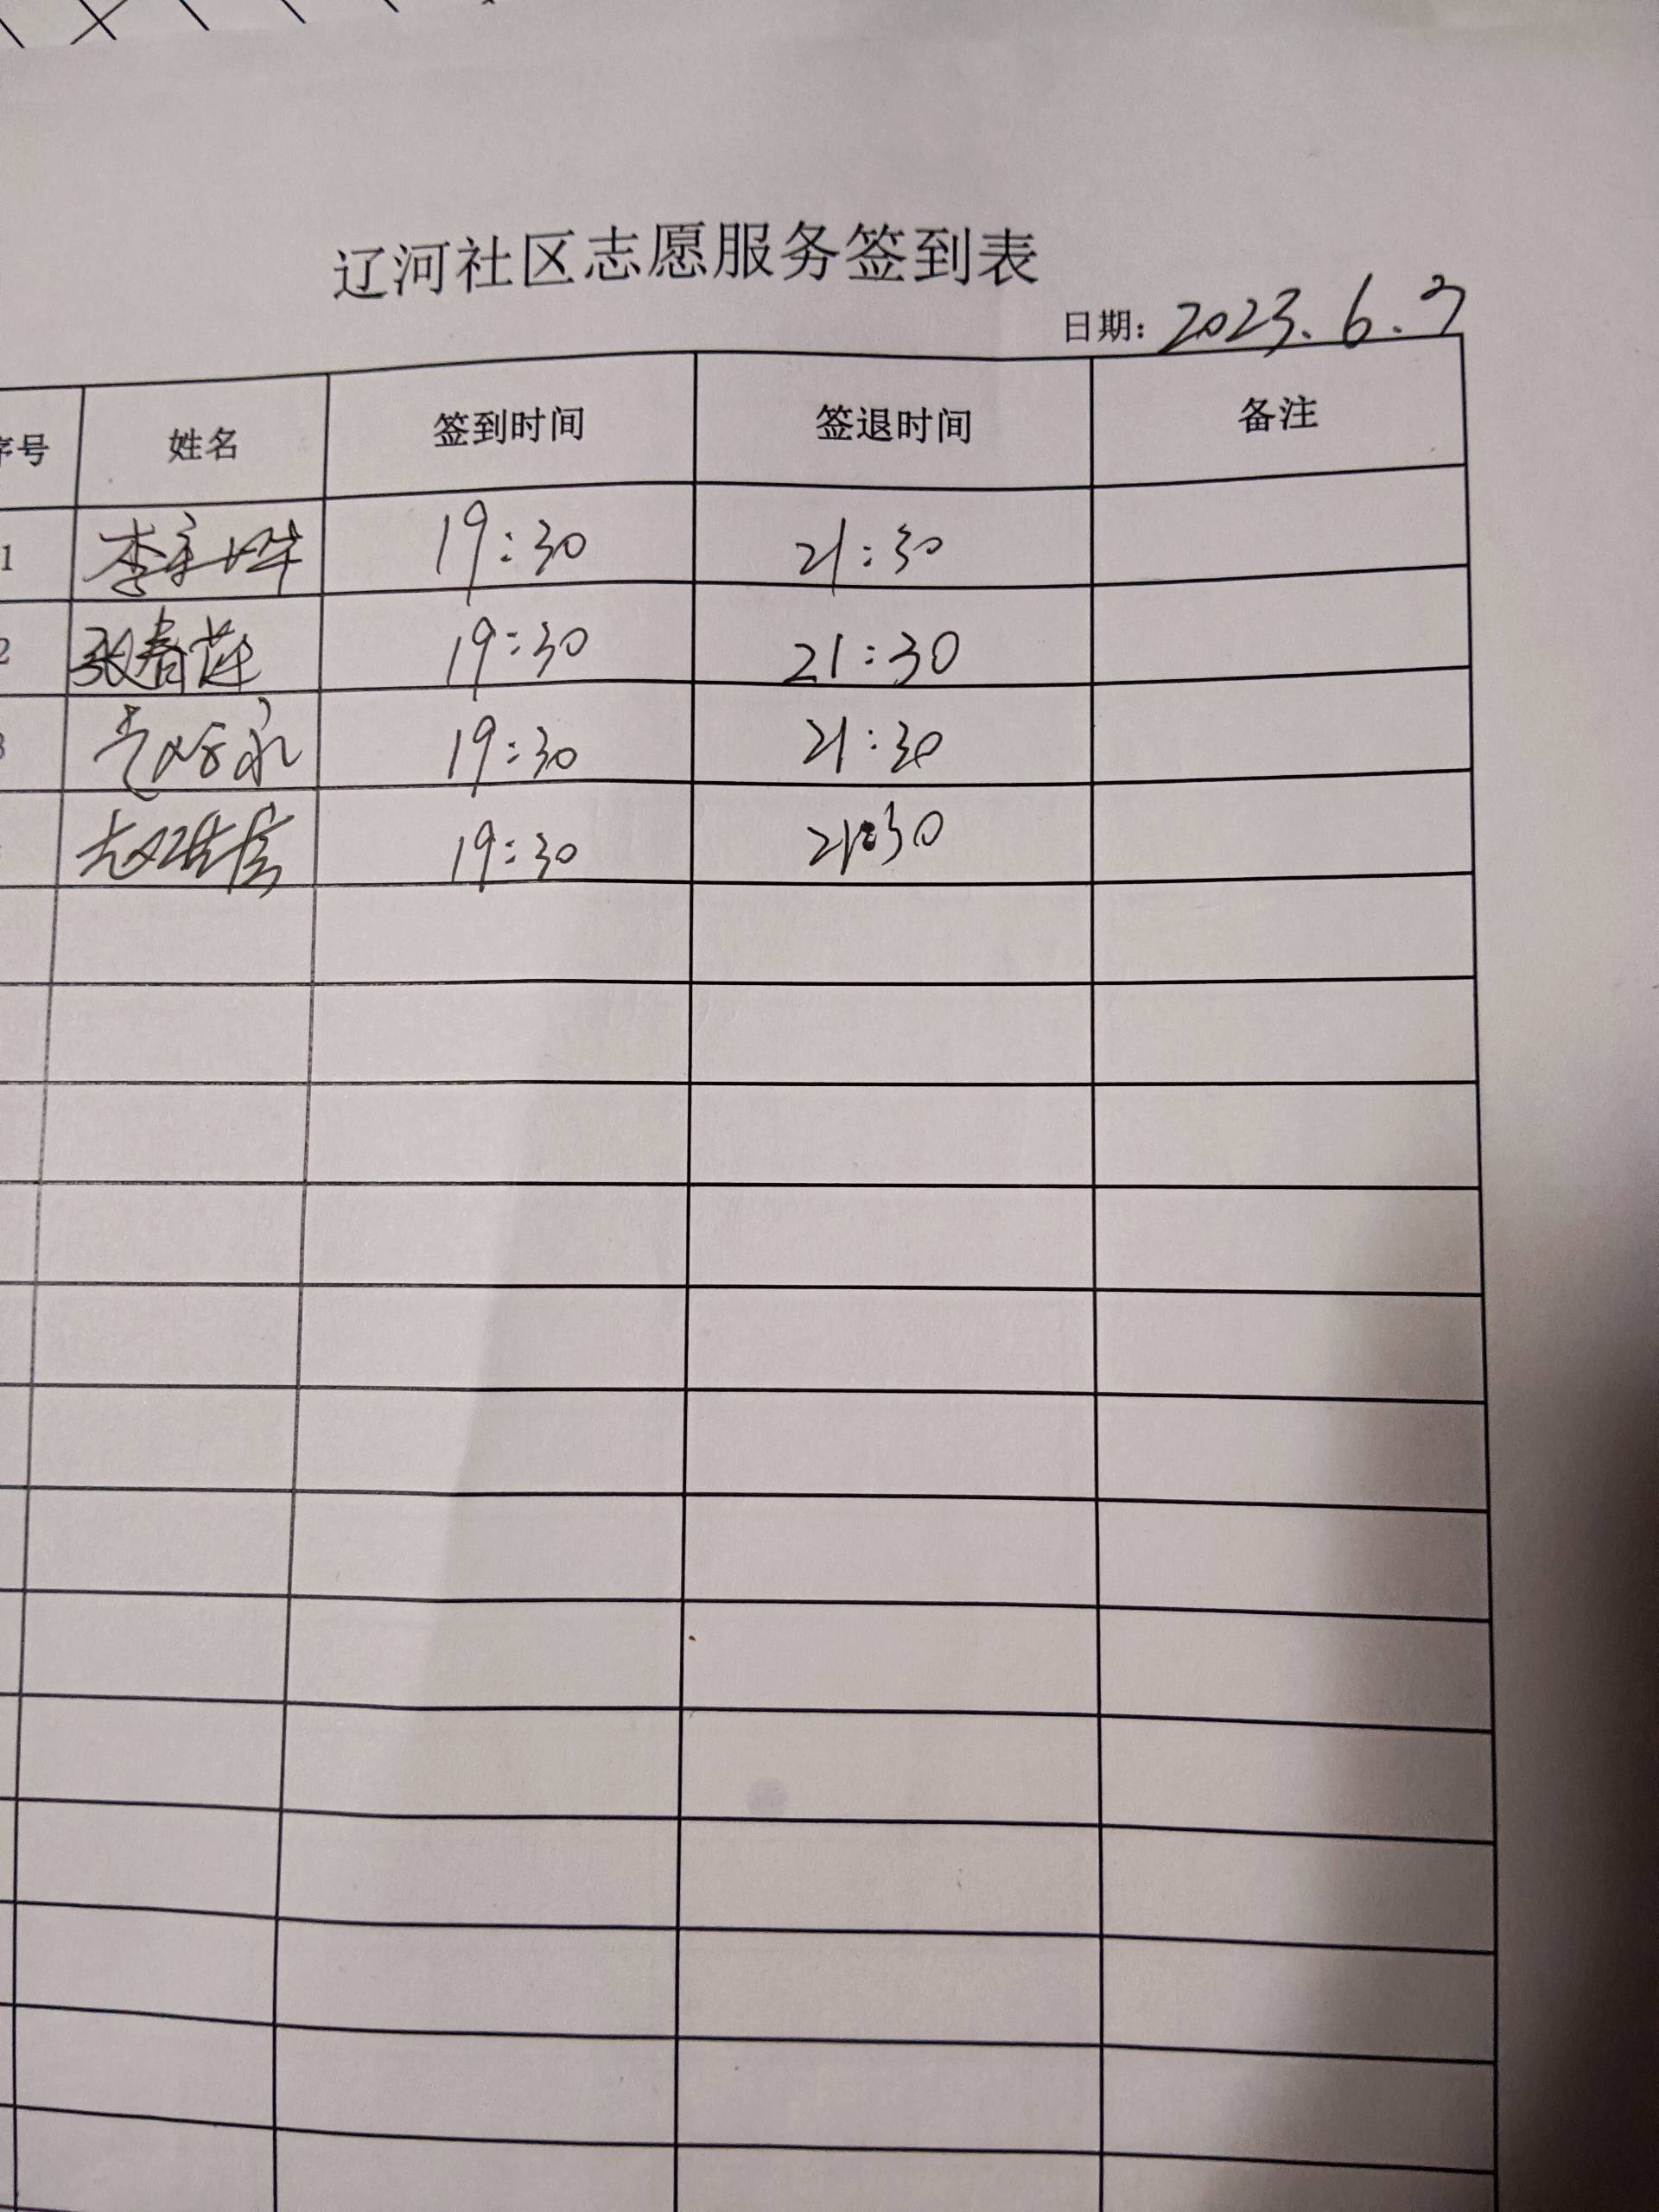 辽河社区志愿服务签到表
日期: 2023.6.7
序号 姓名 签到时间 签退时间 备注
1 19:30 21:30
2 张春莲 19:30 21:30
3 19:30 21:30
19:30 21:30